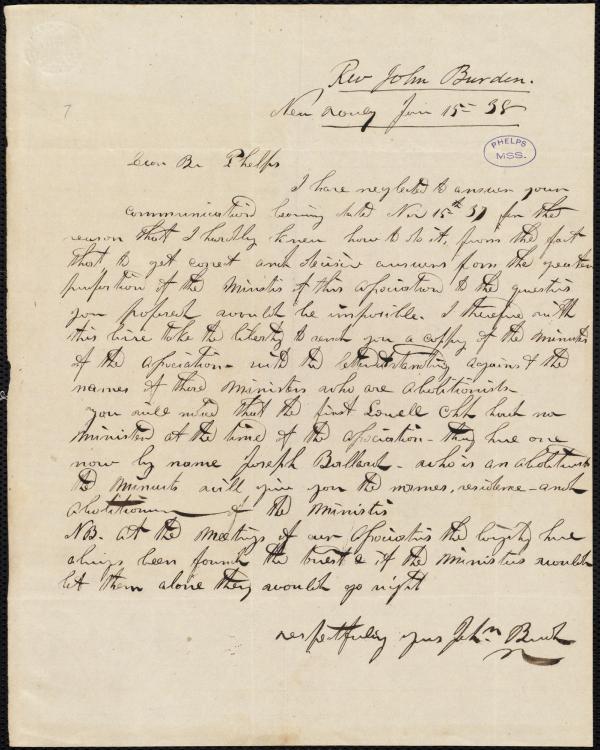 7
Rev John Burden.
Jan 15 - 38
PHELPS
MSS.
Dear Br Phelps
I have neglected to answer your
communication bearing date Nov 15th 37 for the
reason that I hardly knew how to do it, from the fact
that to get corect and decisive answers from the greater
proportion of the Ministers of this Association to the questions
you proposed would be imposible. I therefore with
this hire take the liberty to send you a coppy of the Minuts
of the Association - with the letter standing against the
names of those Ministers who are abolitionists -
you will mind that the first Lowell Chh had no
Minister at the time of the Association - they have one
now by name Joseph Ballard - who is an abolitionist
the Minuts will give you the names, residence - and
of the Ministers
NB. at the Meetings of our Association the laity have
always been found the truest & if the Ministers would
let them alone they would go right
respectfully yours John